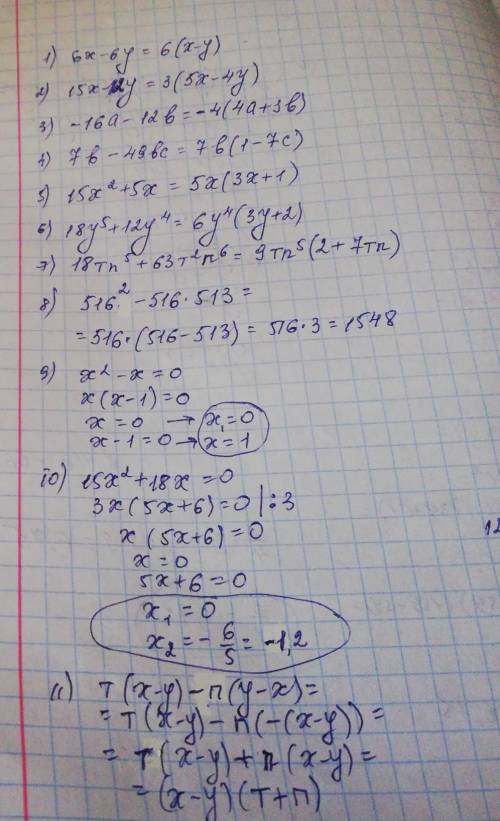 1) 6x-6y = 6(x-y)
2) 15x-12y = 3(5x-4y)
3) -16a-12b = -4(4a+3b)
4) 7b-49bc = 7b(1-7c)
5) 15x²+5x = 5x(3x+1)
6) 18y⁵+12y⁴ = 6y⁴(3y+2)
7) 18тп⁵+63т²п⁶ = 9тп⁵(2+7тп)
8) 516²-516·513 =
=516·(516-513) = 516·3 = 1548
9) x²-x=0
x(x-1)=0
x=0 → x₁=0
x-1=0 → x=1
10) 15x²+18x=0
3x(5x+6)=0 |:3
x(5x+6)=0
12
x=0
5x+6=0
x₁=0
x₂=-6/5=-1,2
11) т(x-y)-п(y-x)=
=т(x-y)-п(-(x-y))=
=т(x-y)+п(x-y)=
=(x-y)(т+п)